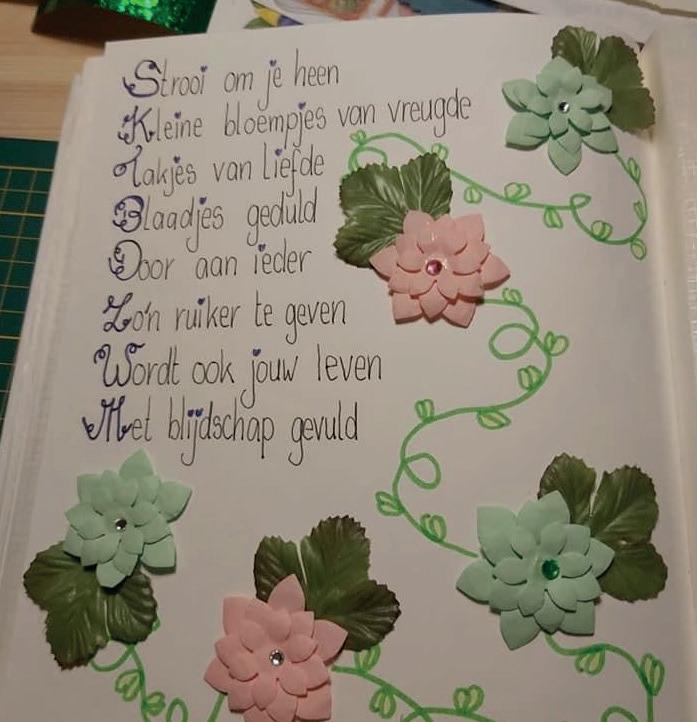 Strooi om je heen
Kleine bloempjes van vreugde
Takjes van liefde
Blaadjes geduld
Door aan ieder
Zo'n ruiker te geven
Wordt ook jouw leven
Met blijdschap gevuld